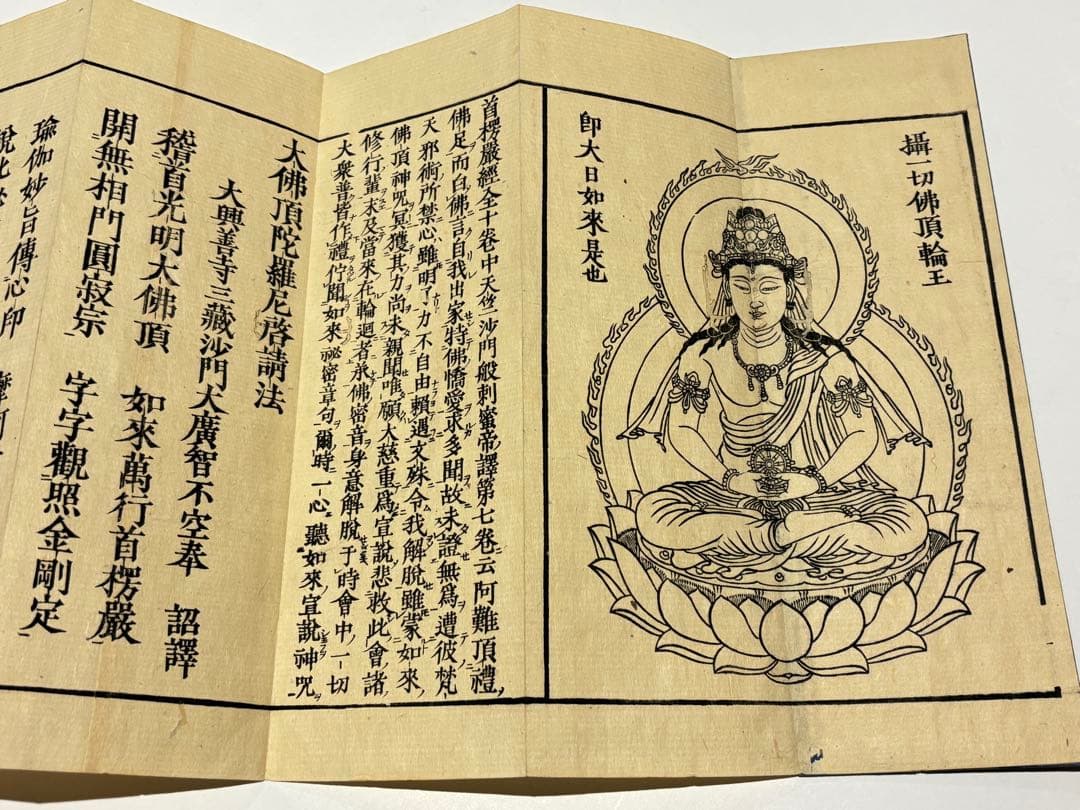 攝一切佛頂輪王
卽大日如來是也
首楞嚴經全十卷中天竺沙門般剌蜜帝譯第七卷云阿難頂禮
佛足而白佛言自我出家恃佛憍愛求多聞故未證無爲遭彼梵
天邪術所禁心雖明了力不自由賴遇文殊令我解脫雖蒙如來
佛頂神呪冥獲其力尚未親聞唯願大慈重爲宣說悲救此會諸
修行輩末及當來在輪迴者承佛密音身意解脫于時會中一切
大衆普皆作禮佇聞如來祕密章句爾時一心聽如來宣說神呪
大佛頂陀羅尼啓請法
大興善寺三藏沙門大廣智不空奉 詔譯
稽首光明大佛頂 如來萬行首楞嚴
開無相門圓寂宗 字字觀照金剛定
瑜伽妙旨傳心印